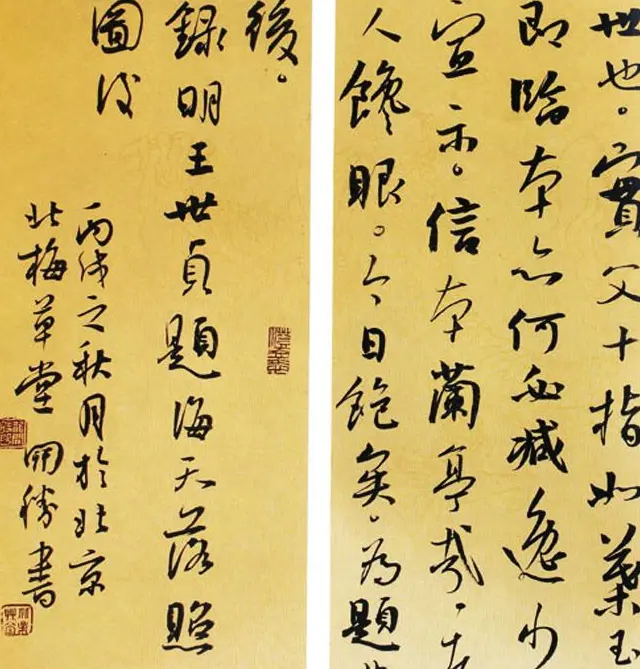 世也。實父十指如葉玉
即臨本亦何必減逸少
宣示。信本蘭亭哉。
人饞眼。今日飽矣。為題
後。
錄明王世貞題海天落照
圖後
丙戌之秋月於北京
北梅草堂 開勝書